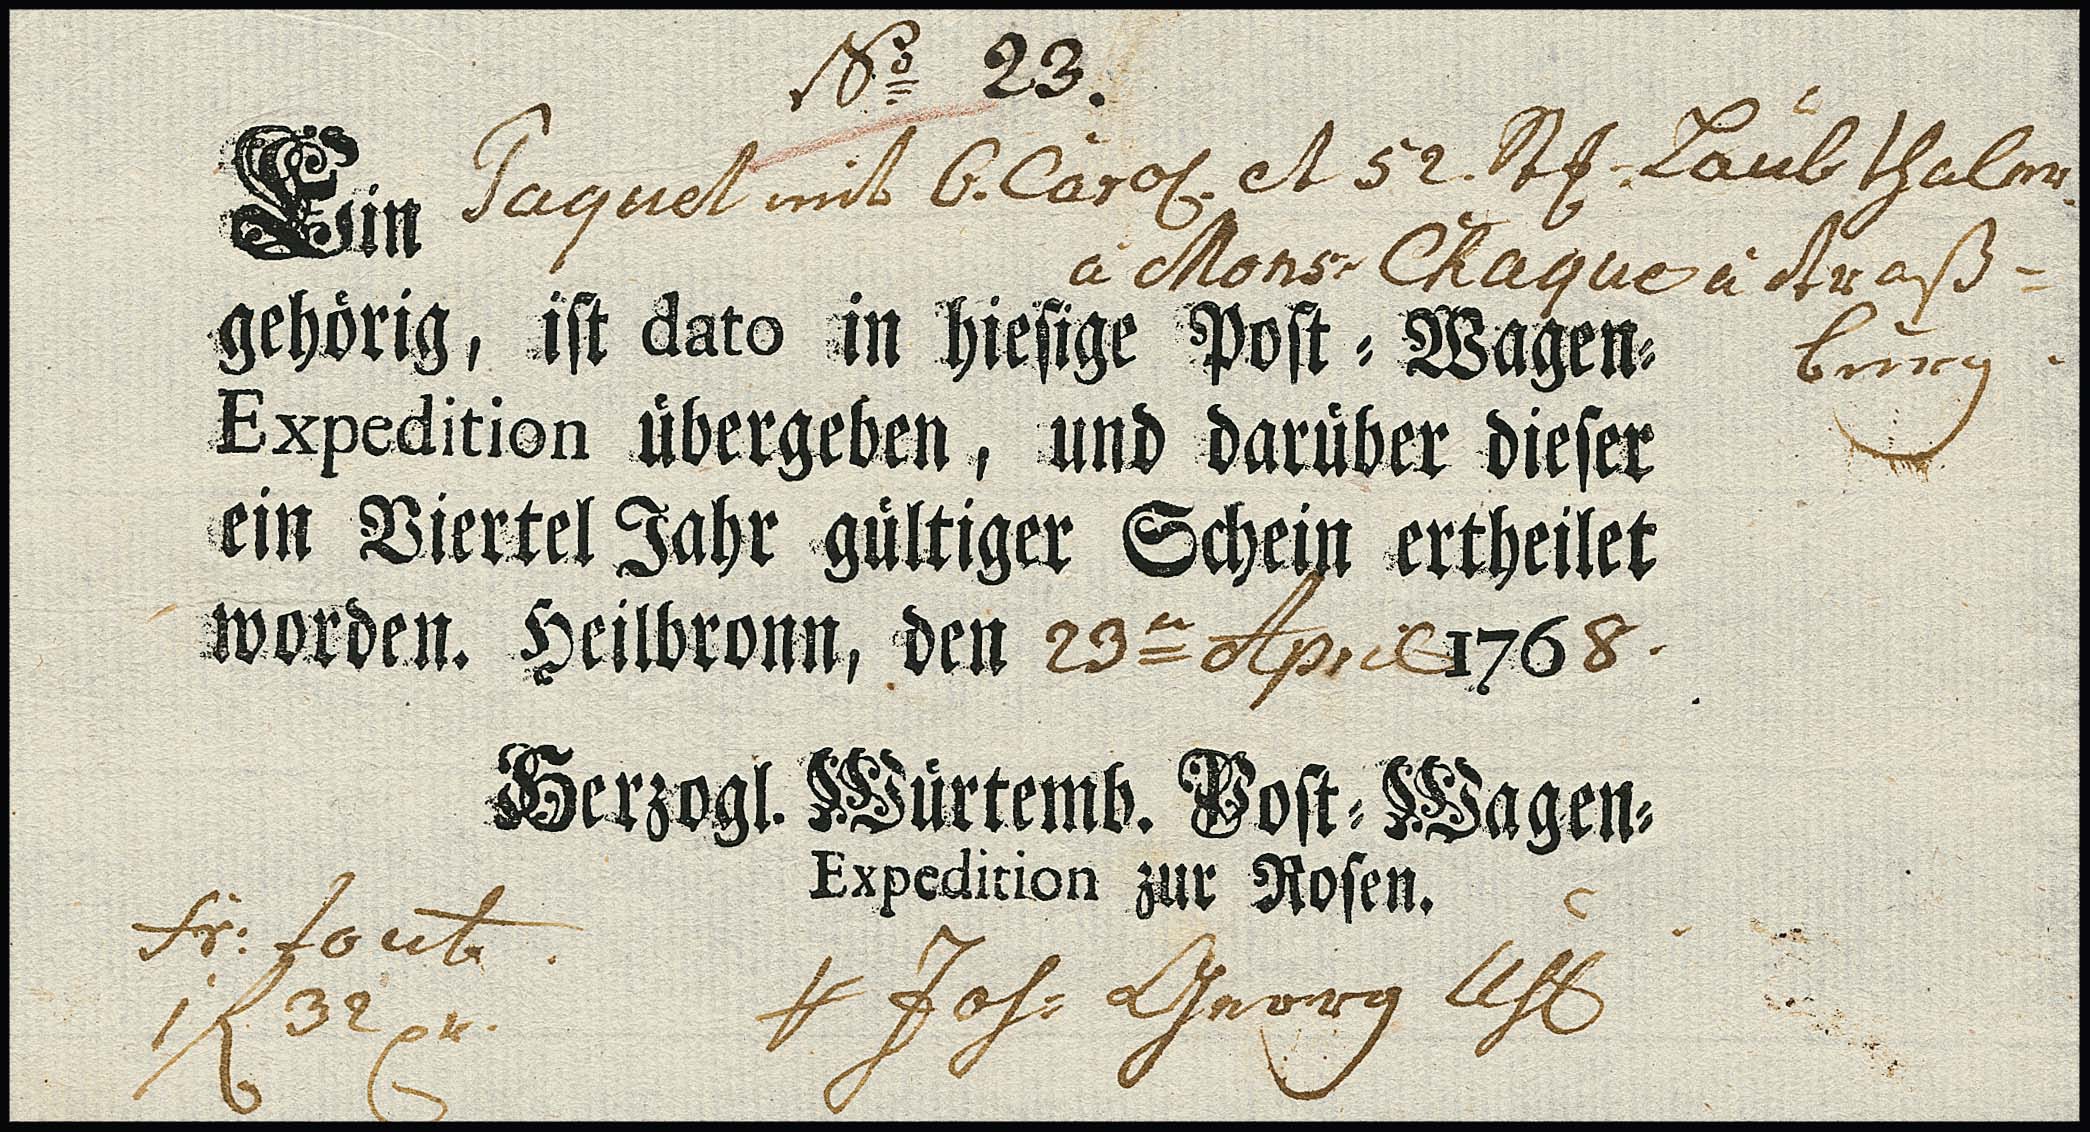 No. 23.
Ein Paquet mit 6. Carol. et 52. Laubthaler
à Mons. Chaque à Straß-
burg.
gehörig, ist dato in hiesige Post-Wagen-
Expedition übergeben, und darüber dieser
ein Viertel Jahr gültiger Schein ertheilet
worden. Heilbronn, den 23ten April 1768.
Herzogl. Würtemb. Post-Wagen-
Expedition zur Rosen.
fr: tout.
1 f 32 Xr.
Joh: Georg